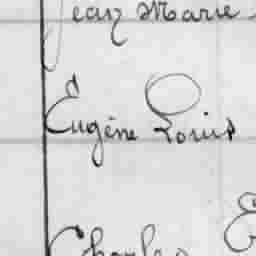 Jean Marie
Eugène Louis
Charles